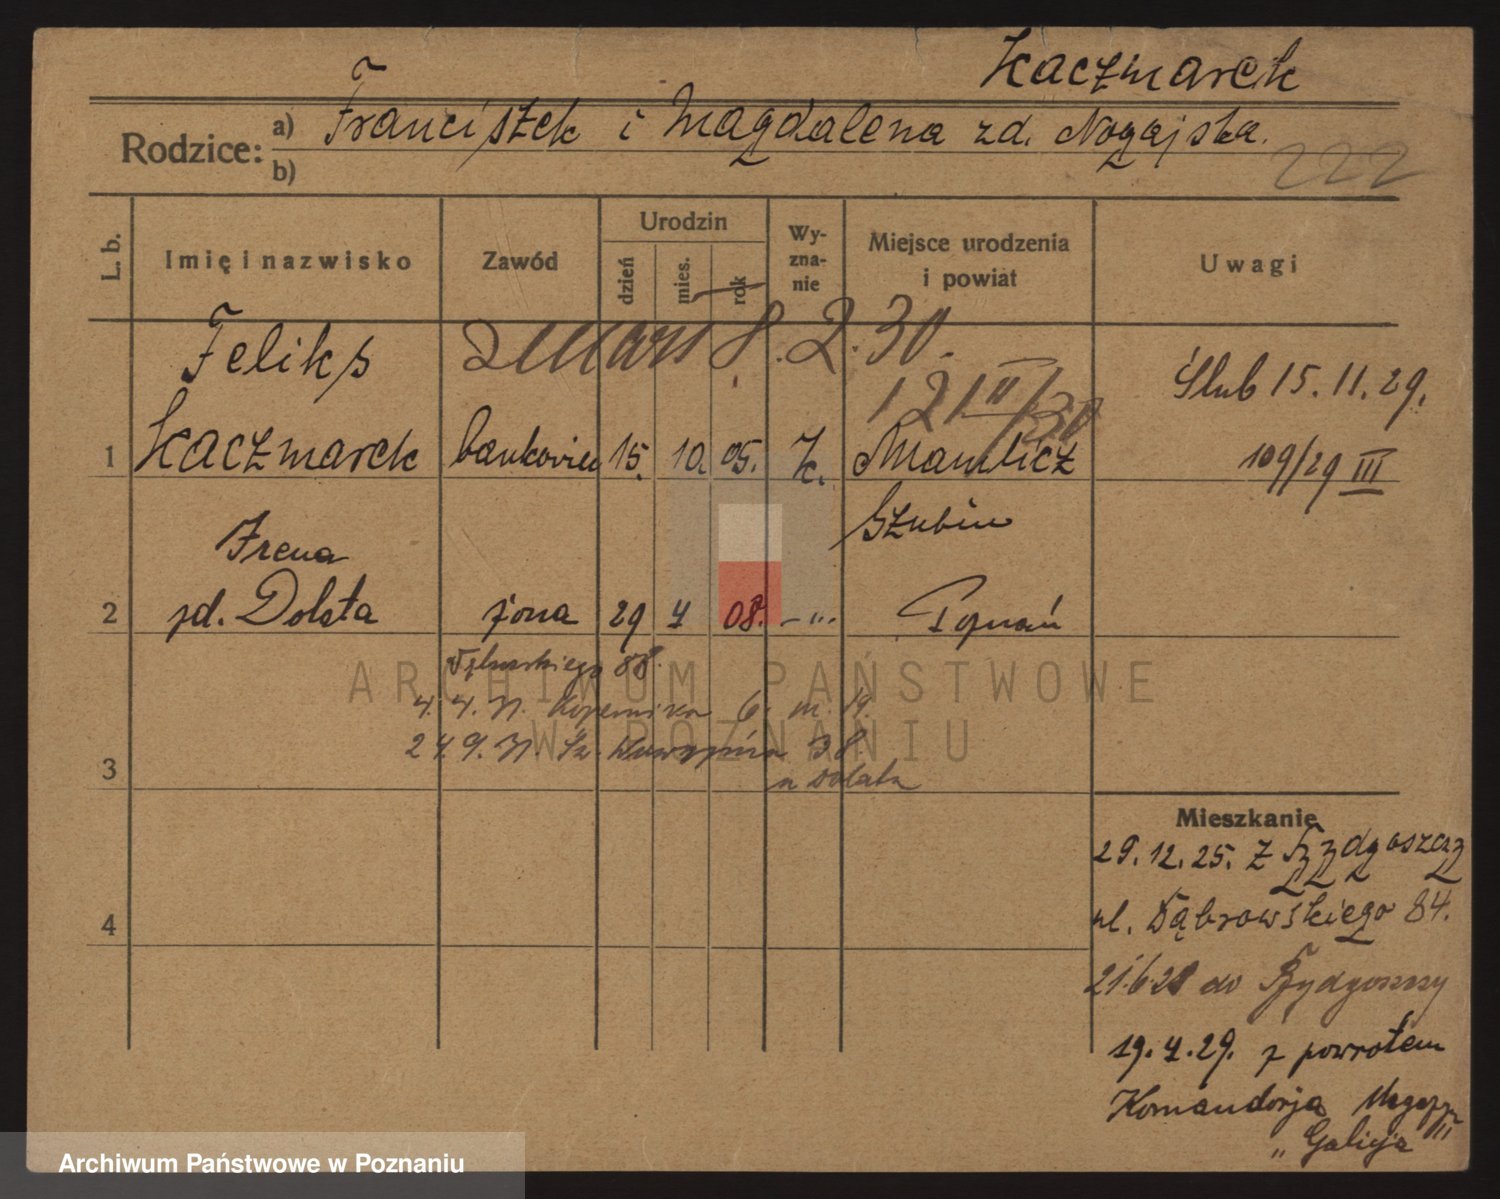 Kaczmarek
Rodzice: a) Franciszek i Magdalena zd. Nogajska.
b)
222
L. b.
Imię i nazwisko
Zawód
Urodzin
dzień
mies.
rok
Wy-
zna-
nie
Miejsce urodzenia
i powiat
Uwagi
Feliks
zmarł 8.2.30.
12/II/30
Ślub 15.11.29.
1 Kaczmarek bankowiec 15. 10. 05. K. Mamlicz
109/29 III
Szubin
Irena
2 zd. Dolata żona 29 4 08. -"- Poznań
88.
4.4. Kopernika 6. m. 19.
24.9. Św. Wawrzyńca 38
u Dolata
3
4
Mieszkanie
29.12.25. z Bydgoszczy
ul. Dąbrowskiego 84.
21.6.28 do Bydgoszczy
19.4.29. z powrotem
Komandorja
"Galicja"
ARCHIWUM PAŃSTWOWE
W POZNANIU
Archiwum Państwowe w Poznaniu